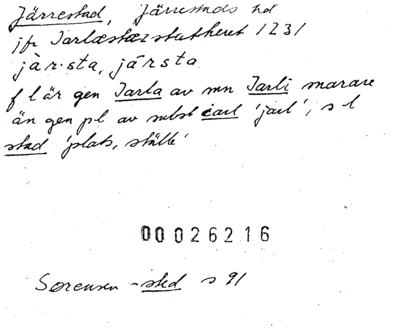 Järrestad, Järrestads hd
jfr Jarlæstazstathæret 1231
jàr·sta, jársta
f l är gen Jarla av mn Jarli snarare
än gen pl av subst iarl 'jarl', s l
stad 'plats, ställe'
00026216
Sørensen -sted s 91